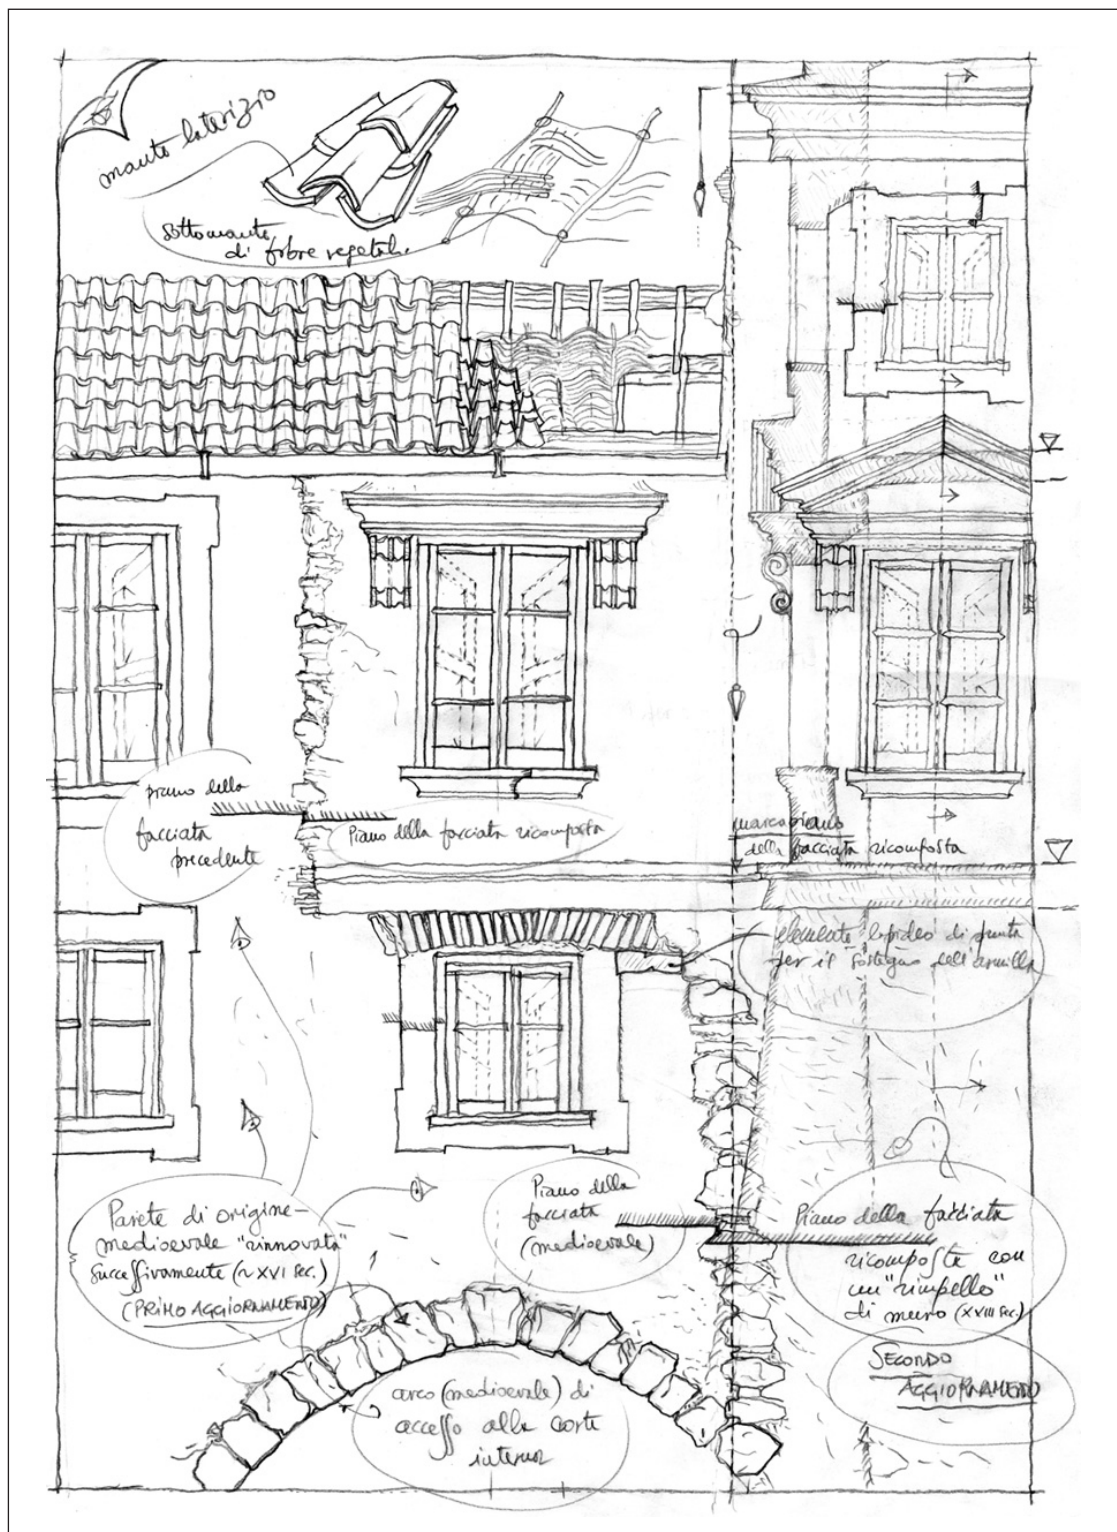 manto laterizio
sottomanto
di fibre vegetali
piano della
facciata
precedente
Piano della facciata ricomposta
marcapiano
della facciata ricomposta
elemento lapideo di punta
per il sostegno dell'armilla
Parete di origine
medioevale "rinnovata"
successivamente (~XVI sec.)
(PRIMO AGGIORNAMENTO)
Piano della
facciata
(medioevale)
Piano della facciata
ricomposta con
un "rimpello"
di muro (XVIII sec.)
SECONDO
AGGIORNAMENTO
arco (medioevale) di
accesso alla corte
interna